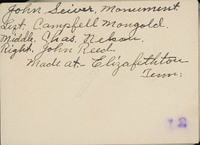 John Sciver, Monument
Left. Campfell Mongold.
Middle. Chas. Nelson.
Right. John Reed
Made at Elizafethton
Tenn:
12